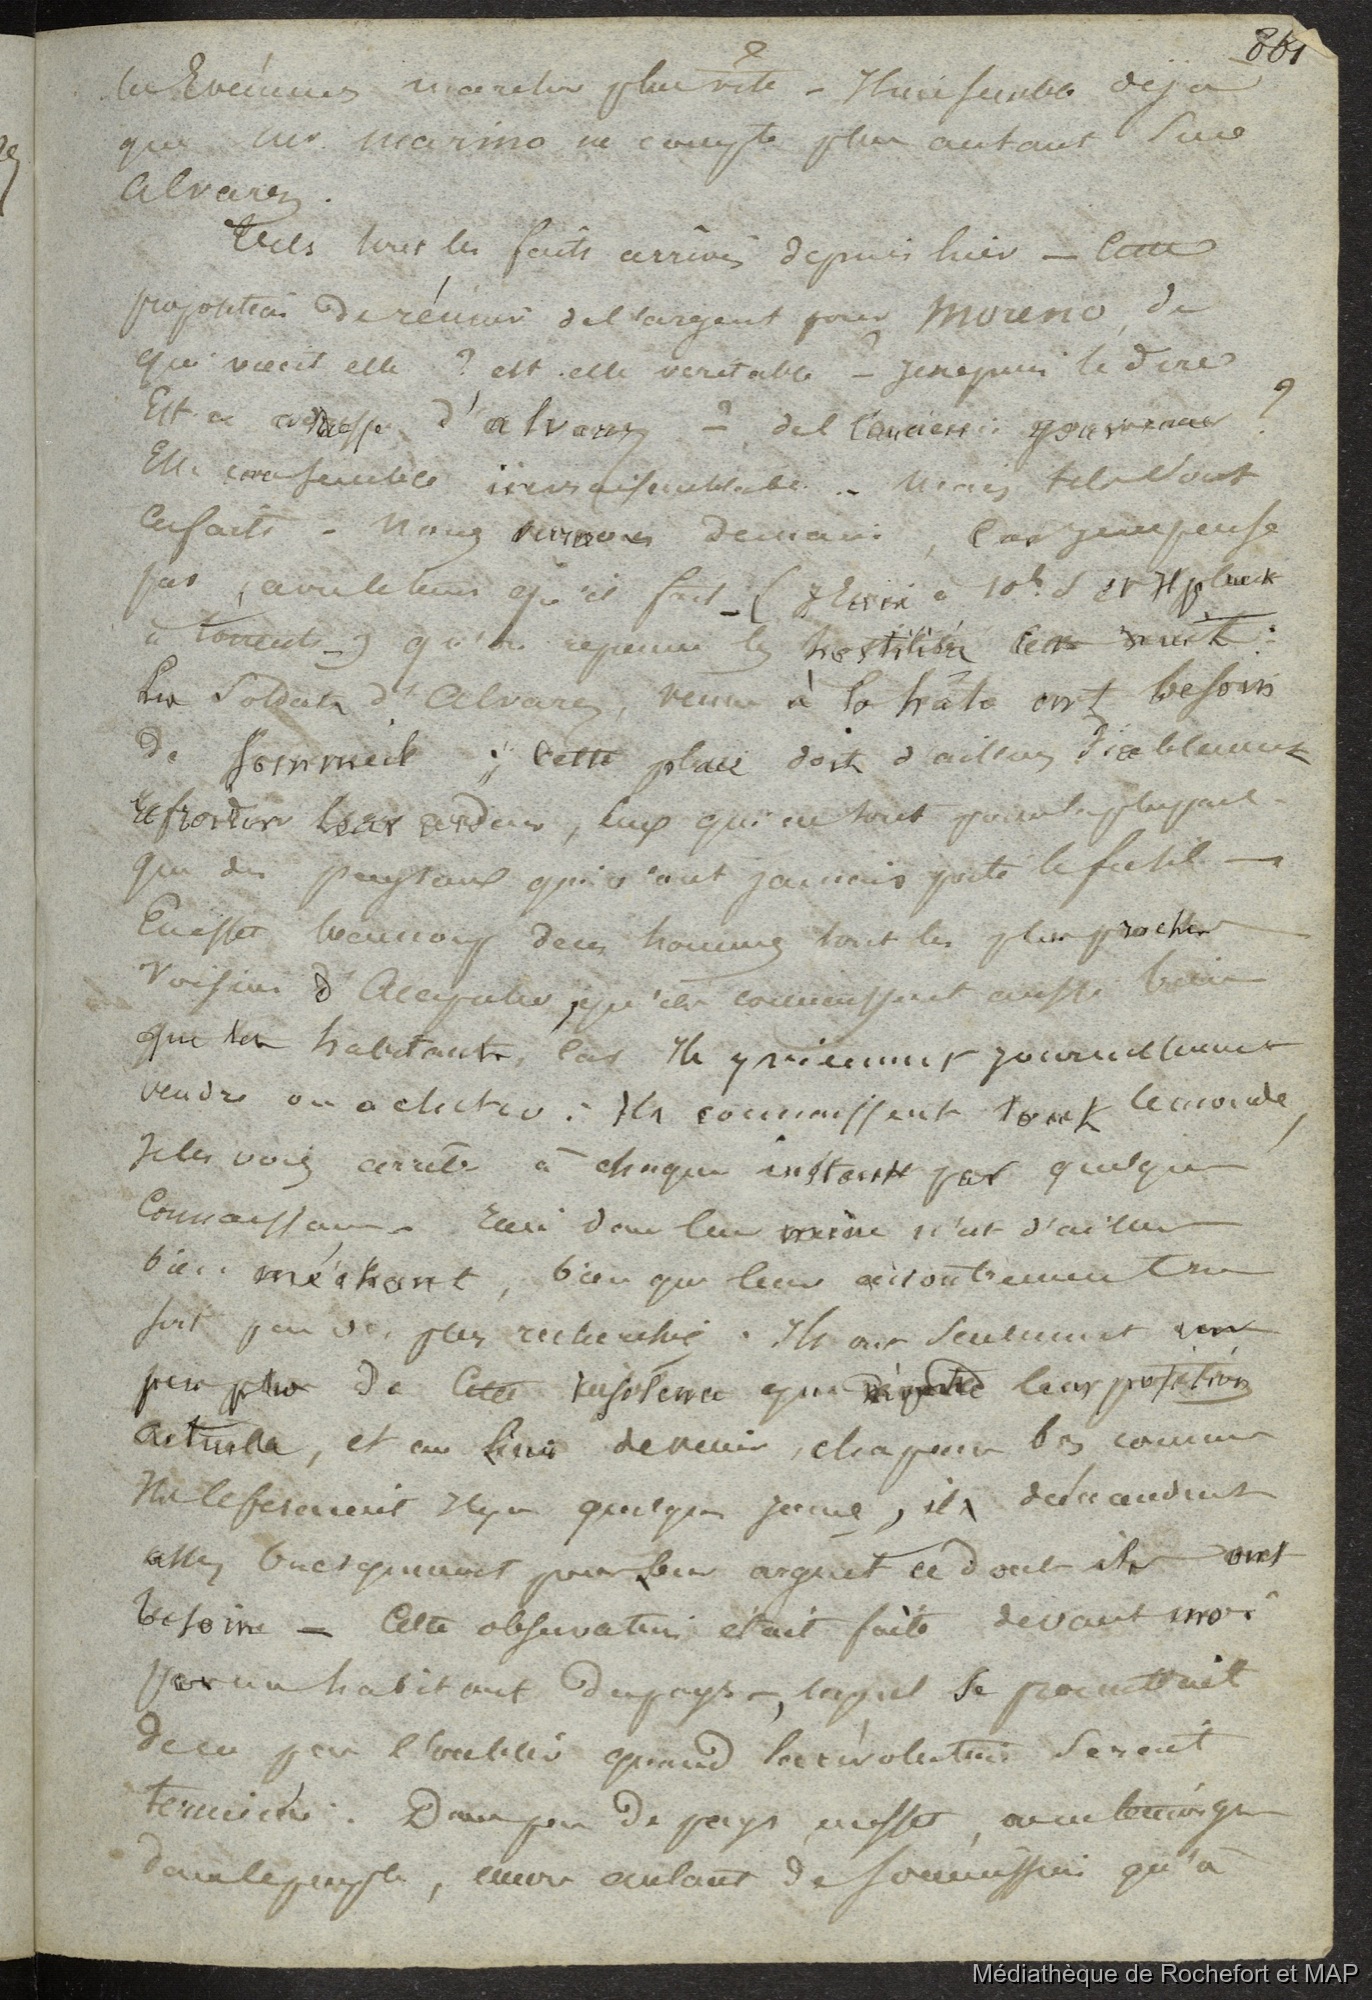 861
les Evénemens marcher plus vite - Il me semble déja
que Mr. Marino ne compte plus autant sur
Alvarez.
Tels sont les faits arrivés depuis hier — Cette
proposition de réunir de l'argent pour Moreno, de
qui vient elle ? est-elle veritable - Je ne puis le dire
Est ce adresse d'alvarez - ? de l'ancien gouverneur ?
Elle me semble invraisemblable - Mais tels sont
les faits - Nous verrons demain, Car je ne pense
pas, avec le tems qu'il fait - ( J'écris à 10h. S et Il pleut
à torrents - ) qu'on reprenne les hostilités cette nuit :
Les Soldats d'Alvarez, venus à la hâte ont besoin
de sommeil ; Cette pluie doit d'ailleurs diablement
refroidir leur ardeur, Eux qui ne sont pour la plupart
que des paysans qui n'ont jamais porté le fusil —
En effet beaucoup de ces hommes sont les plus proches
voisins d'Acapulco, qu'ils connaissent aussi bien
que les habitants, Car Ils y viennent journellement
vendre ou acheter : Ils connaissent tout le monde,
Je les vois arrêtés à chaque instant par quelque
Connaissance. Rien dans leur mine n'est d'ailleurs
bien méchant, bien que leur accoutrement ne
soit pas des plus recherché. Ils ont seulement un
peu plus de Cette insolence que leur position
actuelle, et au lieu de venir, chapeau bas comme
Ils le fesaient Il y a quelques jours, ils demandent
assez brusquement pour leur argent ce dont ils ont
besoin — Cette observation était faite devant moi
par un habitant du pays, lequel se promettait
de ne pas l'oublier quand la révolution serait
terminée. Dans peu de pays, en effet, on ne témoigne
dans le peuple, encore autant de soumission qu'à